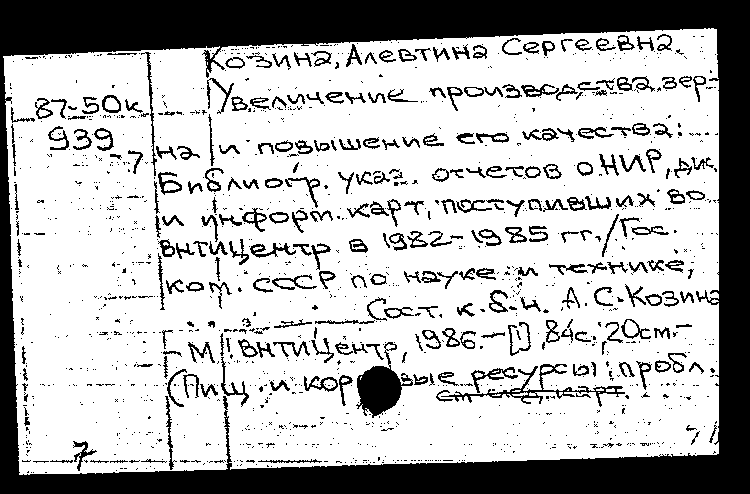 Козина, Алевтина Сергеевна.
87-50к
Увеличение производства зер-
939
-7
на и повышение его качества:
Библиогр. указ. отчетов о НИР, дис.
и информ. карт, поступивших во
ВНТИЦентр в 1982-1985 гг./Гос.
ком. СССР по науке и технике;
Сост. к.б.н. А.С.Козина
- М.: ВНТИЦентр, 1986.-[] ,84с.;20см.-
(Пищ. и кор вые ресурсы: пробл.
см след. карт.
7